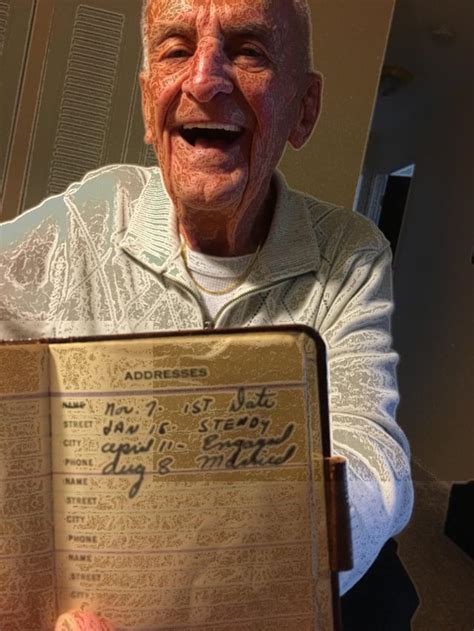 ADDRESSES
NAME Nov. 7. 1ST Date
STREET JAN 15. STEADY
CITY april 11 - Engaged
PHONE Aug 8 Married
NAME
STREET
CITY
PHONE
NAME
STREET
CITY
PHONE